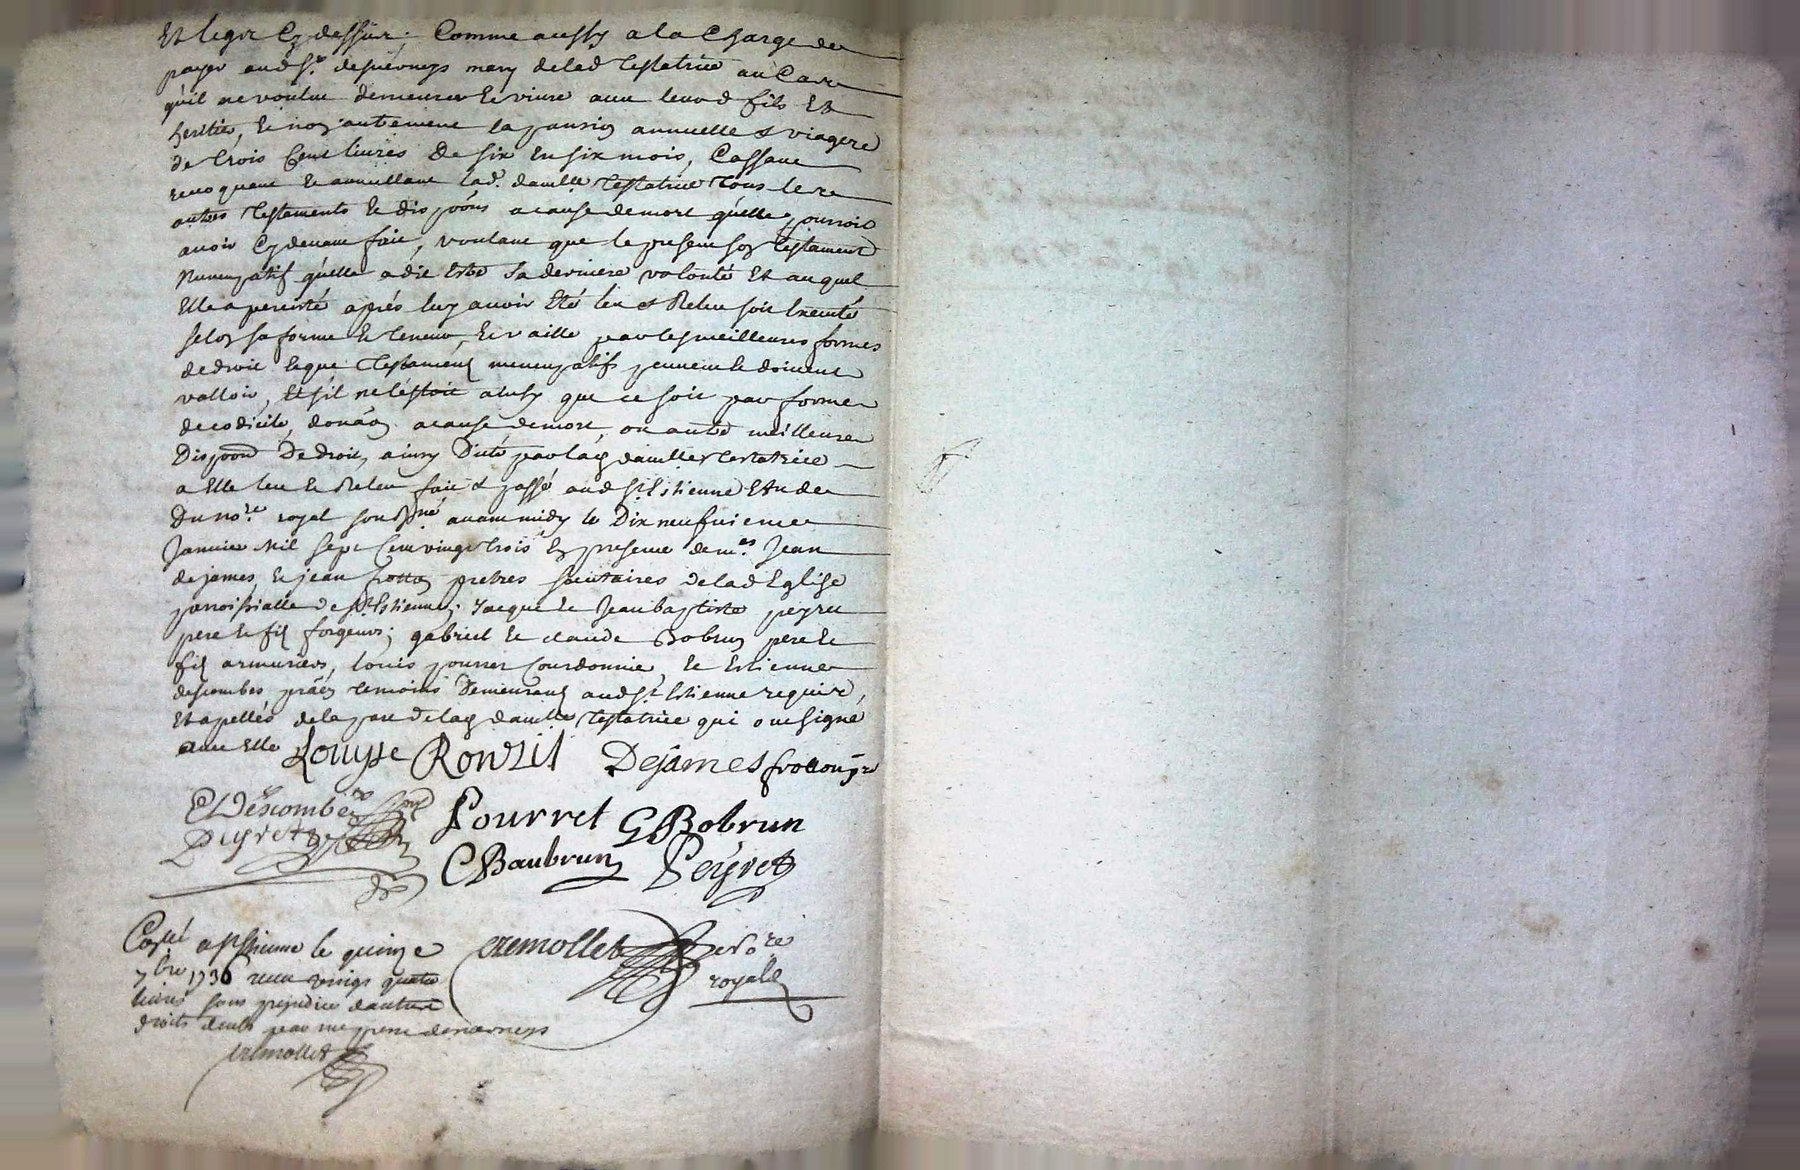 Et legat Cy dessus; Comme aussy a la Charge de
payer aud Sr. desverneys mary de lad Testatrice au Cas
quil ne voulut demeurer Et vivre avec leurd fils Et
heritier, Et non autrement la pansion annuelle & viagere
de trois Cent livres De six En six mois, Cassant
revoquant Et annullant lad. damlle Testatrice tous
autres Testaments Et dispoons a cause de mort qu'elle pourroit
avoir Cy devant fait, voulant que le present son Testament
Nuncupatif qu'elle a dit Estre sa derniere volonté Et auquel
Elle a percisté après luy avoir Eté leu & Releu soit Executé
selon sa forme Et teneur, Et vaille par les meilleures formes
de droit que Testaments nuncupatifs peuvent Et doivent
valloir, Et s'il ne l'estoit ainsy que ce soit par forme
de codicile, donãon a cause de mort, ou autre meilleure
Dispoon De droit, ainsy Dicté par lad damlle testatrice
a Elle leu Et Releu fait & passé aud St Estienne Etude
Du nore. royal soussigné avant midy le Dix neufvieme
Janvier Mil sept Cent vingt trois En presence de mres Jean
dejames, Et jean frotton pretres societaires De lad Eglise
paroissialle de St Estienne; Jacque Et Jean baptiste peyret
pere Et fils forgeurs; gabriel Et claude Bobrun pere Et
fils armuriers, louis pourret Courdonnier, Et Estienne
descombes praen temoins Demeurans aud St Estienne requis,
Et apellés de la part de lad damlle Testatrice qui ont signé
avec Elle
Louyse Ronzil Dejames frotton ptre
E Descombes
Peyret Pourret G Bobrun
C Baubrun Peyret
Coppié a St Etienne le quinze
7bre 1736 receu vingt quatre
livres sans prejudice dautres
droits deubs par mr pere desverneys
cremollet
cremollet Nore
royal